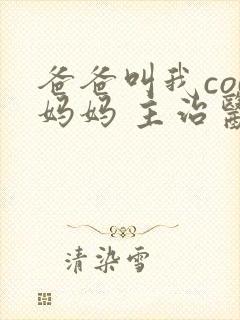 爸爸叫我co
妈妈 主治
清染雪